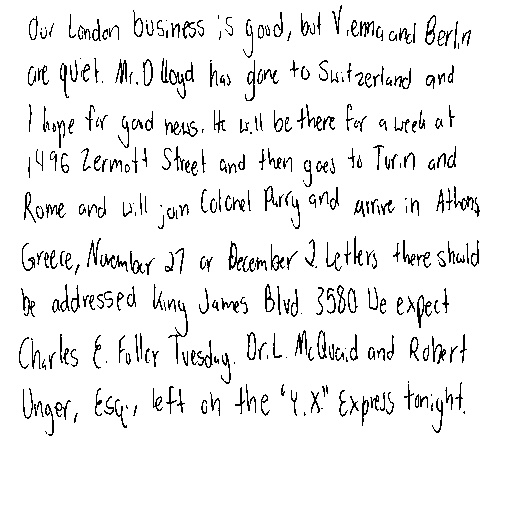 Our London business is good, but Vienna and Berlin
are quiet. Mr. D Lloyd has gone to Switzerland and
I hope for good news. He will be there for a week at
1496 Zermott Street and then goes to Turin and
Rome and will join Colonel Parry and arrive in Athens,
Greece, November 27 or December 2. Letters there should
be addressed King James Blvd. 3580 We expect
Charles E. Fuller Tuesday. Dr. L. McQuaid and Robert
Unger, Esq., left on the "Y.X." Express tonight.